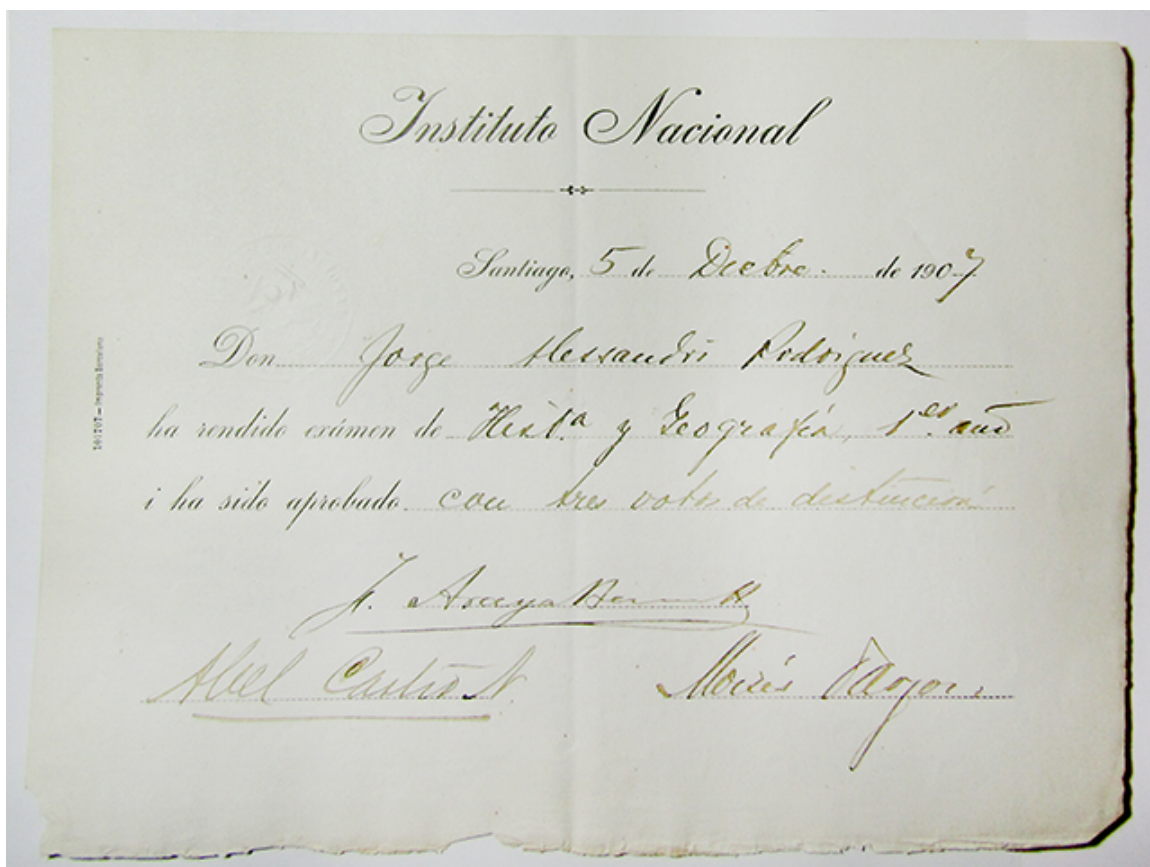 Instituto Nacional
Santiago, 5 de Dicbre. de 1907
Don Jorge Alessandri Rodriguez
ha rendido exámen de Hist.ª y Geografía, 1.er año
i ha sido aprobado con tres votos de distinción
J. Araya
Abel Castro N.
Moisés